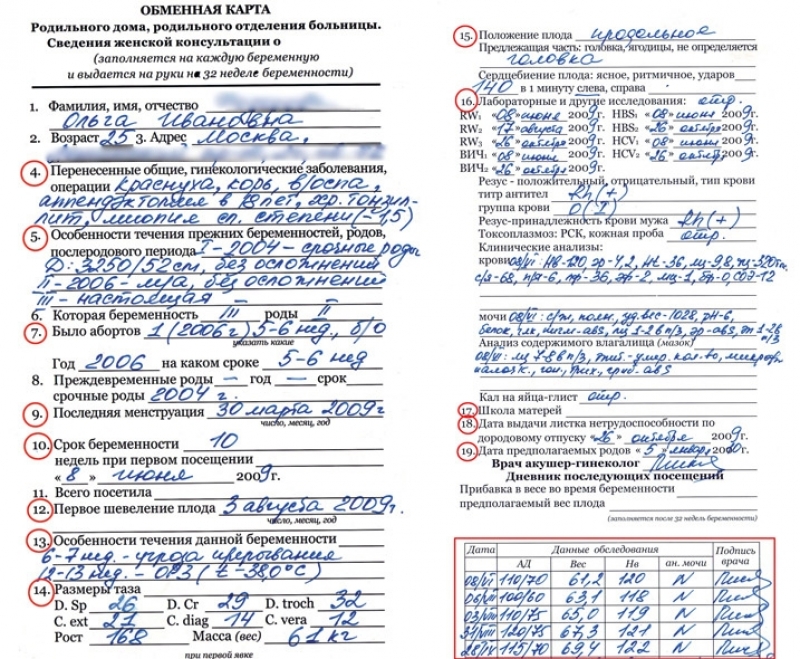 ОБМЕННАЯ КАРТА
Родильного дома, родильного отделения больницы.
Сведения женской консультации о
(заполняется на каждую беременную
и выдается на руки на 32 неделе беременности)
1. Фамилия, имя, отчество
Ольга Ивановна
2. Возраст 25 3. Адрес Москва,
4. Перенесенные общие, гинекологические заболевания,
операции Краснуха, корь, в/оспа,
аппендэктомия в 18 лет, хр. тонзил-
лит, миопия сл. степени (-1,5)
5. Особенности течения прежних беременностей, родов,
послеродового периода I-2004 – срочные роды
Д: 3250/52см, без осложнений
II-2006 – м/а, без осложнений
III – настоящая
6. Которая беременность III роды II
7. Было абортов 1 (2006г) 5-6 нед., б/о
указать какие
Год 2006 на каком сроке 5-6 нед
8. Преждевременные роды — год — срок
срочные роды 2004 г.
9. Последняя менструация 30 марта 2009г
число, месяц, год
10. Срок беременности 10
недель при первом посещении
« 8 » июня 2009г.
11. Всего посетила
12. Первое шевеление плода 3 августа 2009г.
число, месяц, год
13. Особенности течения данной беременности
6-7 нед. – угроза прерывания
12-13 нед. – ОРЗ (t – 38,0°C)
14. Размеры таза
D. Sp 26 D. Cr 29 D. troch 32
C. ext 21 C. diag 14 C. vera 12
Рост 168 Масса (вес) 61 кг
при первой явке
15. Положение плода продольное
Предлежащая часть: головка, ягодицы, не определяется
головка
Сердцебиение плода: ясное, ритмичное, ударов
140 в 1 минуту слева, справа
16. Лабораторные и другие исследования: отр.
RW₁ «08» июня 2009г. HBS₁ «08» июня 2009г.
RW₂ «17» августа 2009г. HBS₂ «26» октября 2009г.
RW₃ «26» октября 2009г. HCV₁ «08» июня 2009г.
ВИЧ₁ «08» июня 2009г. HCV₂ «26» октября 2009г.
ВИЧ₂ «26» октября 2009г.
Резус - положительный, отрицательный, тип крови
титр антител Rh (+)
группа крови (+)
Резус-принадлежность крови мужа Rh (+)
Токсоплазмоз: РСК, кожная проба отр.
Клинические анализы:
крови 08/VI: Нв-120, эр-4,2,
с/я-68, п/я-6, эр-2, СОЭ-12
мочи 08/VI: с/ж, полн, уд.вес-1028, pH-6,
белок, abs, эр-abs,
Анадиз содержимого влагалища (мазок)
08/VI: abs
Кал на яйца-глист отр.
17. Школа матерей
18. Дата выдачи листка нетрудоспособности по
дородовому отпуску «26» октября 2009г.
19. Дата предполагаемых родов « 5 » января
Врач акушер-гинеколог
Дневник последующих посещений
Прибавка в весе во время беременности
предполагаемый вес плода
(заполняется после 32 недель беременности)
Дата Данные обследования Подпись врача
АД Вес Нв ан. мочи
08/VI 110/70 61,2 120 N
06/VII 100/60 63,1 118 N
03/VIII 110/75 65,0 119 N
31/VIII 120/75 67,3 121 N
28/IX 115/70 69,4 122 N